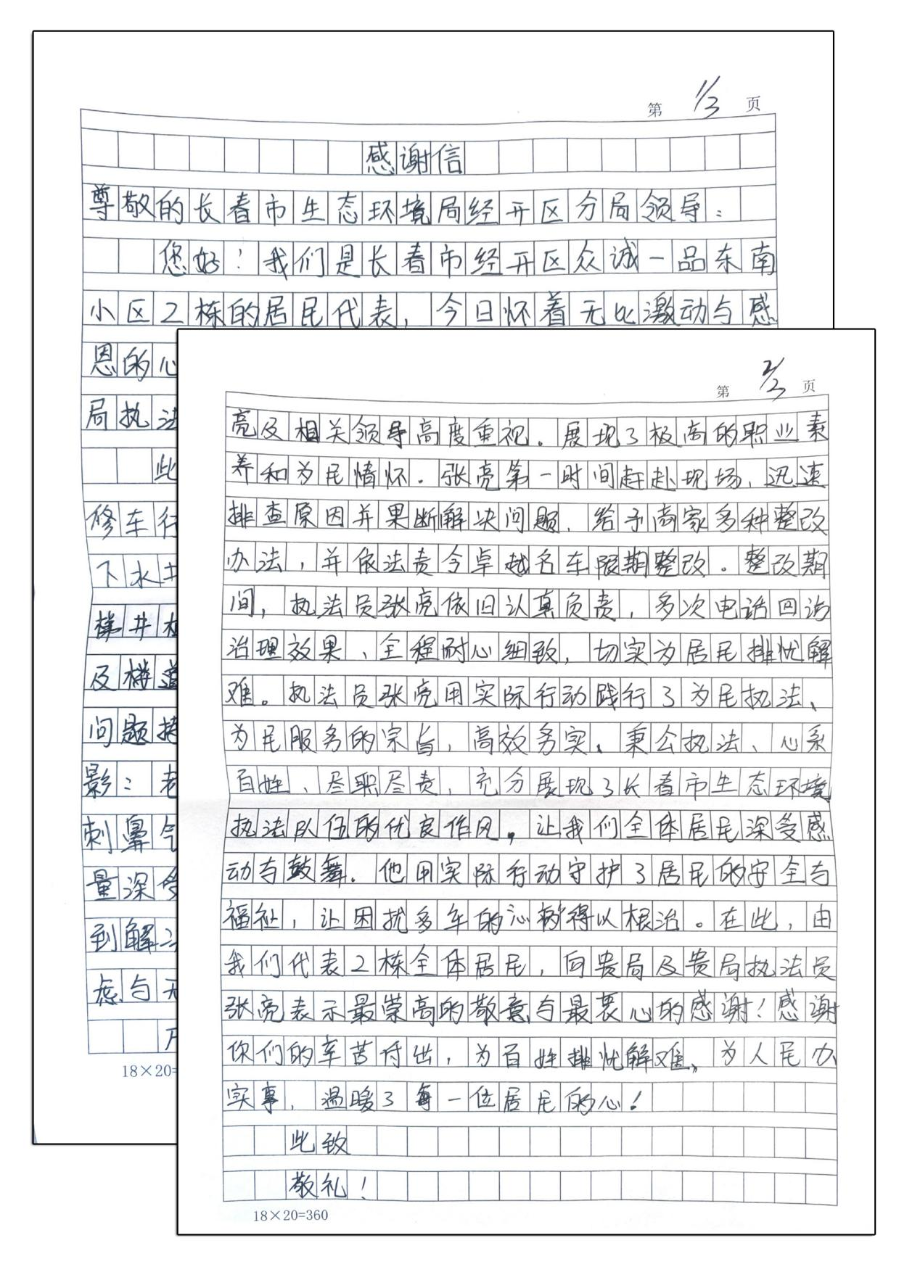 第 1/3 页
感谢信
尊敬的长春市生态环境局经开区分局领导：
您好！我们是长春市经开区众诚一品东南
小区2栋的居民代表，今日怀着无比激动与感
恩的心
局执法
此
修车行
下水井
梯井
及楼道
问题
影：老
刺鼻气
量深受
到解决
虑与无
18×20=
第 2/3 页
亮及相关领导高度重视．展现了极高的职业素
养和为民情怀．张亮第一时间赶赴现场，迅速
排查原因并果断解决问题．给予商家多种整改
办法，并依法责令卓越名车限期整改。整改期
间，执法员张亮依旧认真负责，多次电话回访
治理效果、全程耐心细致，切实为居民排忧解
难。执法员张亮用实际行动践行了为民执法、
为民服务的宗旨，高效务实、秉公执法、心系
百姓、尽职尽责，充分展现了长春市生态环境
执法队伍的优良作风。让我们全体居民深受感
动与鼓舞．他用实际行动守护了居民的安全与
福祉，让困扰多年的沁得以根治。在此，由
我们代表2栋全体居民，向贵局及贵局执法员
张亮表示最崇高的敬意与最衷心的感谢！感谢
你们的辛苦付出，为百姓排忧解难、为人民办
实事，温暖了每一位居民的心！
此致
敬礼！
18×20=360